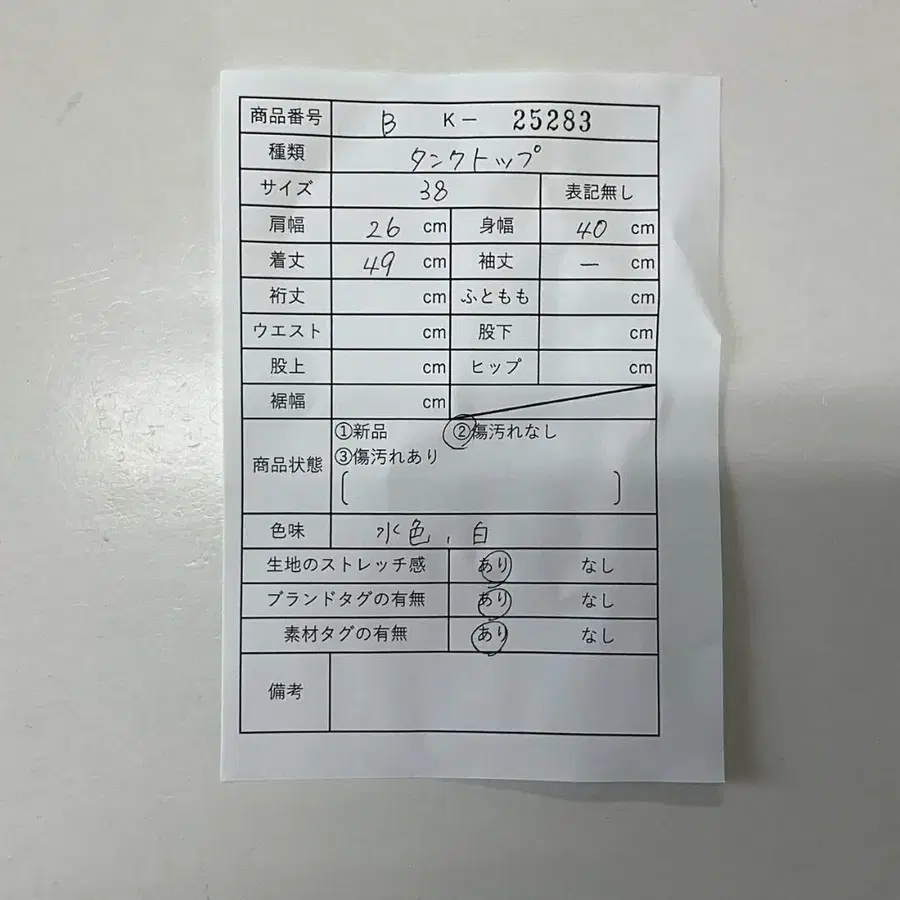 商品番号 B K- 25283
種類 タンクトップ
サイズ 38 表記無し
肩幅 26 cm 身幅 40 cm
着丈 49 cm 袖丈 ー cm
裄丈 cm ふともも cm
ウエスト cm 股下 cm
股上 cm ヒップ cm
裾幅 cm
①新品 ②傷汚れなし
商品状態 ③傷汚れあり
( )
色味 水色, 白
生地のストレッチ感 あり なし
ブランドタグの有無 あり なし
素材タグの有無 あり なし
備考